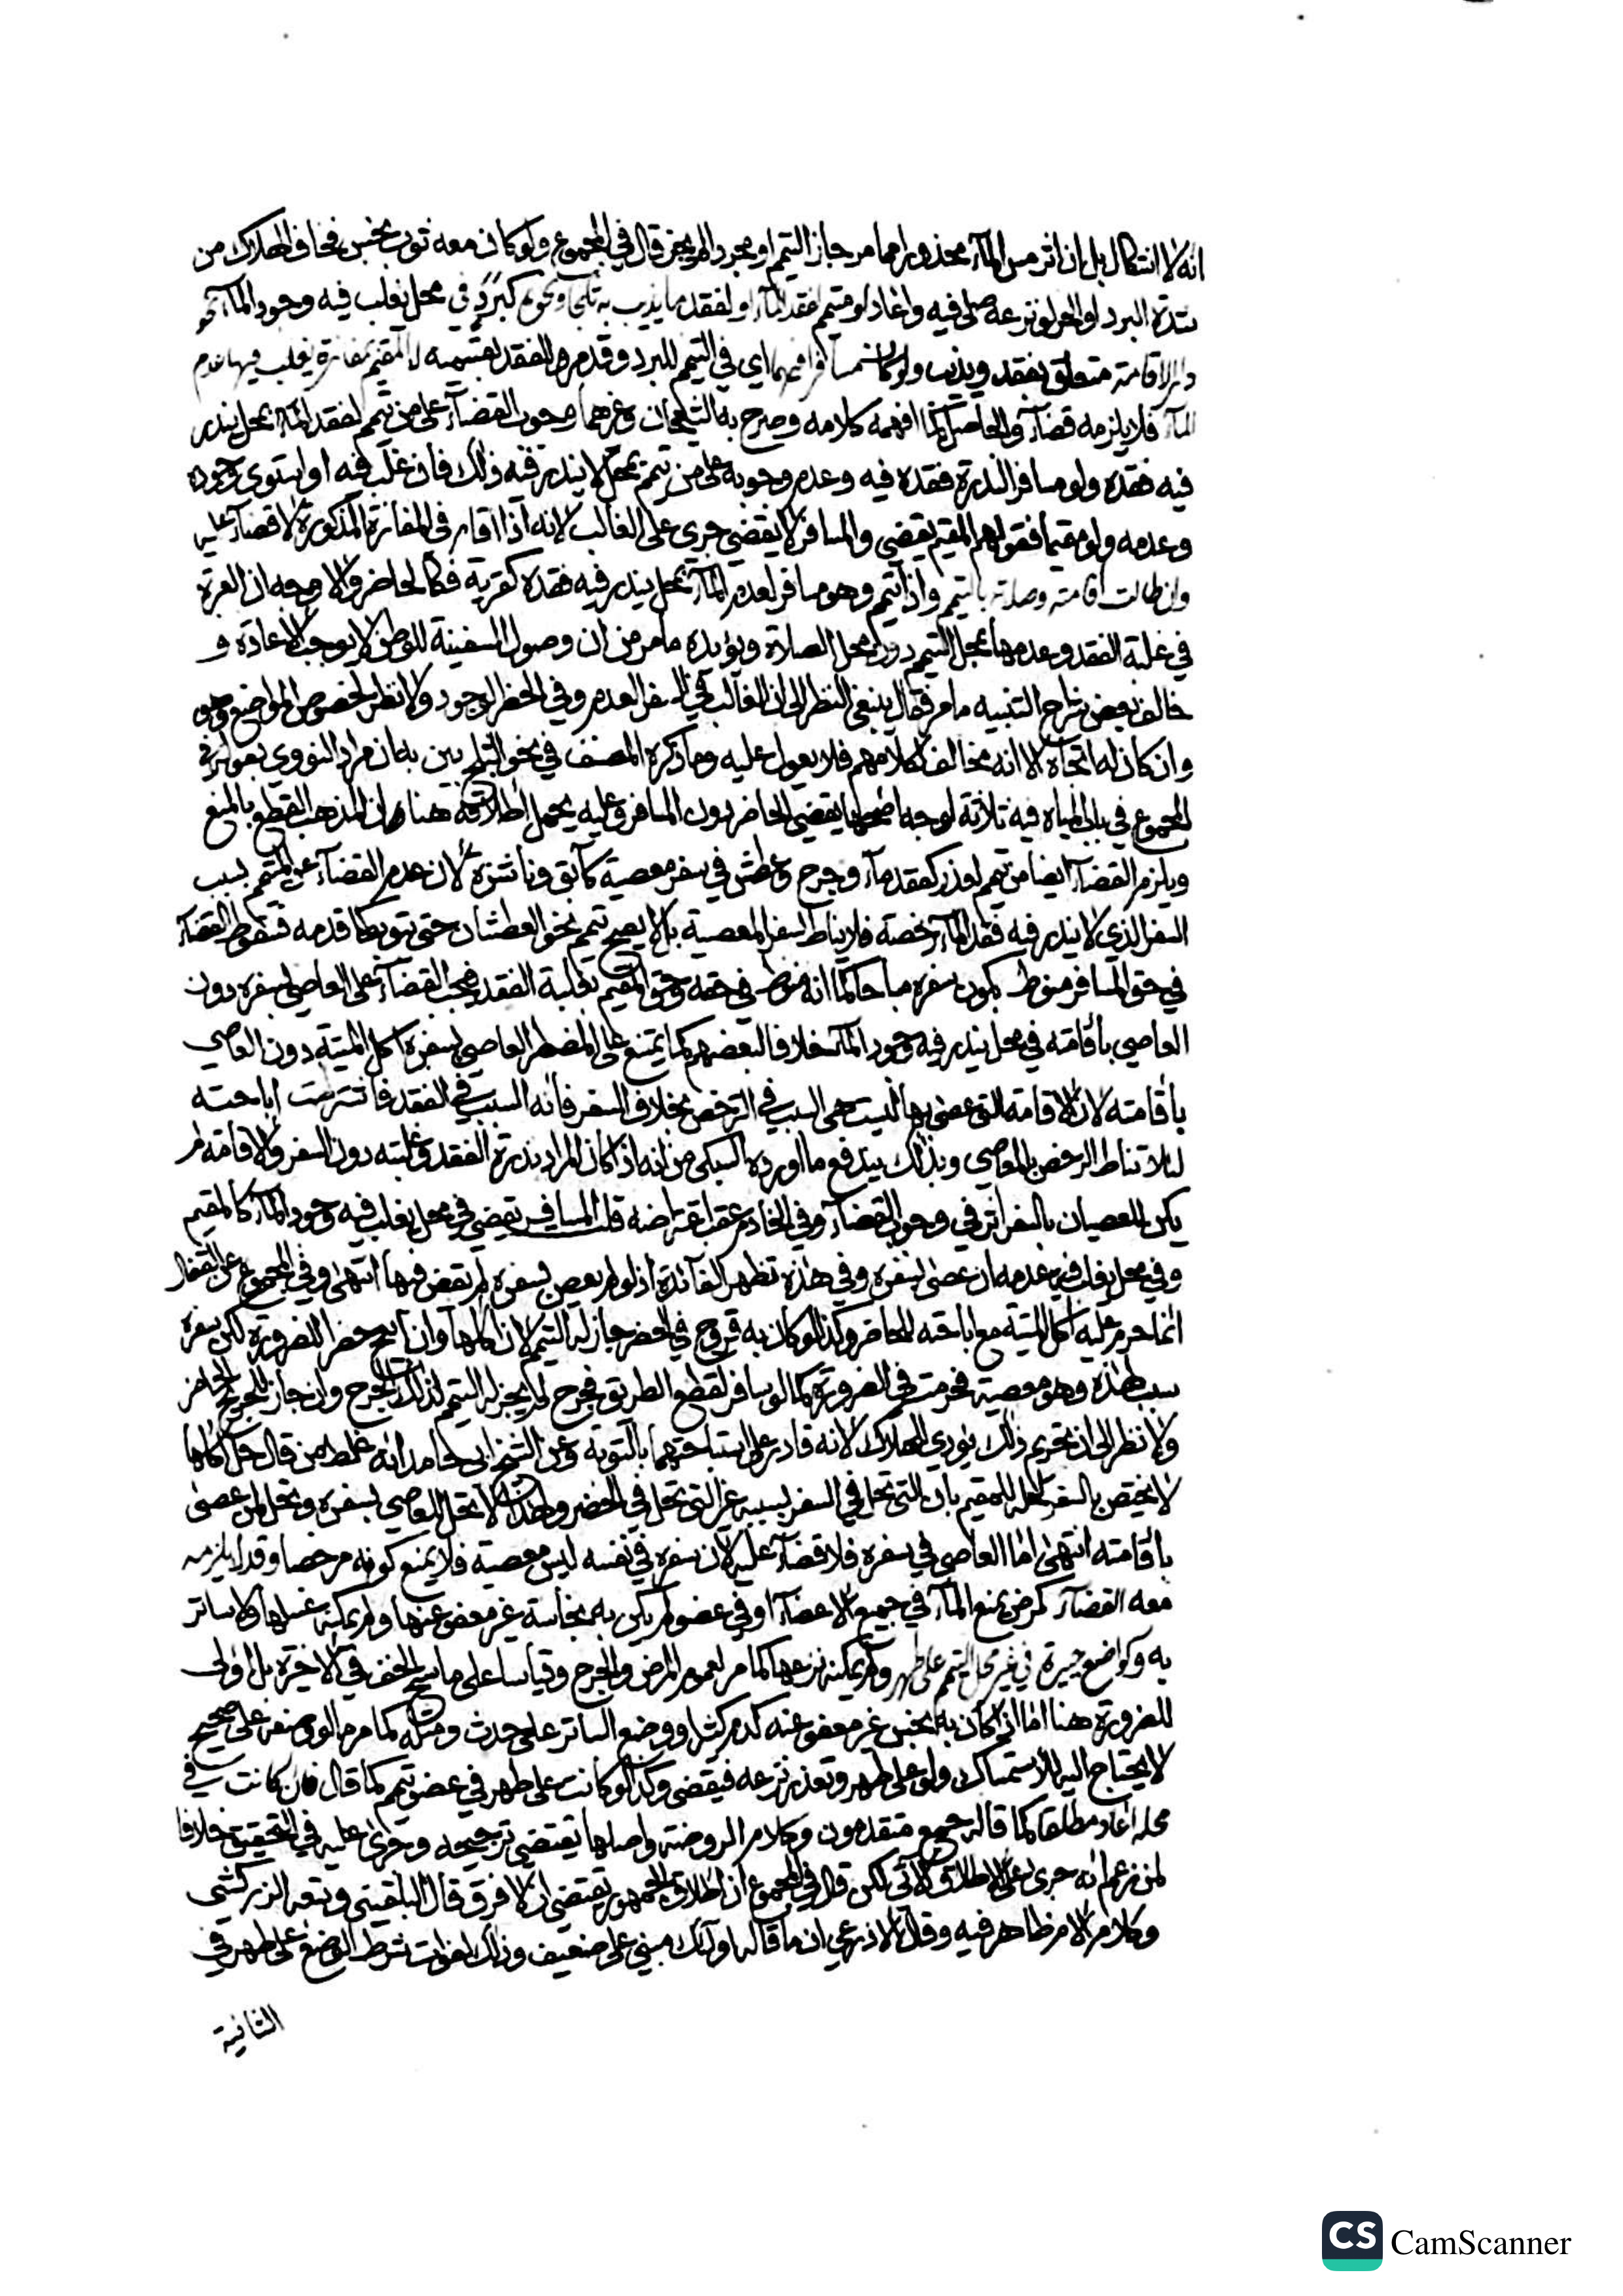 انه لا اشكال بل ان اثر مس المآء محذورا مما مر جاز التيمم او مجرد الم لم يجز قال في المجموع ولو كان معه ثوب نجس فخاف الهلاك من
شدة البرد او الحر لو نزعه صلى فيه واعاد لو متيمم لفقد المآء او لفقد ما يذيب به ثلجا ونحوه كبرد في محل يغلب فيه وجود المآء
متعلق بفقد ويذيب ولو كان مسافرا فيهما اي في التيمم للبرد وقدمه والفقد المقيم بمفازة يغلب فيها عدم
المآء فلا يلزمه قضآء والحاصل كما افهمه كلامه وصرح به الشيخان وغيرهما وجوب القضآء على من تيمم لفقد المآء بمحل يندر
فيه فقده ولو مسافرا لندرة فقده فيه وعدم وجوبه على من تيمم بمحل لا يندر فيه ذلك فان غلب فيه او استوى وجوده
وعدمه ولو مقيما فقولهم المقيم يقضي والمسافر لا يقضي جري على الغالب لانه اذا اقام في المفازة المذكورة لا قضآء عليه
وان طالت اقامته وصلاته بالتيمم واذا تيمم وهو مسافر لعدم المآء بمحل يندر فيه فقده كقرية فكالحاضر والاوجه ان العبرة
في غلبة الفقد وعدمها بمحل التيمم دون محل الصلاة ويؤيده ما مر من ان وصول السفينة للوطن لا يوجب الاعادة و
خالف بعض شراح التنبيه ما مر فقال ينبغي النظر الى ان الغالب في السفر العدم وفي الحضر الوجود ولا نظر لخصوص المواضع وهو
وان كان له اتجاه الا انه مخالف لكلامهم فلا يعول عليه وما ذكره المصنف في نحو الثلج بين به ان مراد النووي بقوله في
المجموع في باب المياه فيه ثلاثة اوجه اصحها يقضي الحاضر دون المسافر وعليه يحمل اطلاقه هنا ان المذهب القطع بالمنع
ويلزم القضآء ايضا من تيمم لعذر كفقد مآء وجرح وعطش في سفر معصية كآبق وناشزة لان عدم القضآء عن المتيمم بسبب
السفر الذي لا يندر فيه فقد المآء رخصة فلا يناط بسفر المعصية بل لا يصح تيمم نحو العطشان حتى يتوب كما قدمه فسقوط القضآء
في حق المسافر منوط بكون سفره مباحا كما انه منوط في حقه وحق المقيم بغلبة الفقد فيجب القضآء على العاصي بسفره دون
العاصي باقامته في محل يندر فيه وجود المآء خلافا لبعضهم كما يمتنع على المضطر العاصي بسفره اكل الميتة دون العاصي
باقامته لان الاقامة التي عصى بها ليست هي السبب في الترخص بخلاف السفر فانه السبب في الفقد فاشترطت اباحته
لئلا تناط الرخص بالمعاصي وبذلك يندفع ما اورده السبكي من انه اذا كان المراد بندرة الفقد وغلبته دون السفر والاقامة لم
يكن للعصيان بالسفر اثر في وجوب القضآء وفي الخادم عقب اعتراضه قلت المسافر يقضي في محل يغلب فيه وجود المآء كالمقيم
وفي محل يغلب فيه عدمه ان عصى بسفره وفي هذه تظهر الفآئدة اذ لو لم يعص بسفره لم يقض فيها انتهى وفي المجموع عن القفال
انما حرم عليه اكل الميتة مع اباحته للحاضر وكذا لو كان به قروح في الحضر جاز له التيمم لان اكلها وان ابيح حضرا للضرورة لكن سفره
سبب هذه وهو معصية فحرمت في الضرورة كما لو سافر لقطع الطريق فجرح لم يجز له التيمم لذلك الجرح وان جاز للجريح الحاضر
ولا نظر الى ان تحريم ذلك يؤدي للهلاك لانه قادر على استباحتهما بالتوبة وعن الشيخ ابي حامد انه غلط من قال حل اكلها
لا يختص بالسفر لحله للمقيم بان التي تحل في السفر بسببه غير التي تحل في الحضر ولهذا لا تحل للعاصي بسفره وتحل لمن عصى
باقامته انتهى اما العاصي في سفره فلا قضآء عليه لان سفره في نفسه ليس معصية فلا يمنع كونه مرخصا وقد لا يلزمه
معه القضآء كمرض يمنع المآء في جميع الاعضآء او في عضو لم يكن به نجاسة غير معفو عنها ولم يمكنه غسلها ولا ساتر
به وكواضع جبيرة في غير محل التيمم على طهر ولم يمكنه نزعها كما مر لعموم المرض والجرح وقياسا على ماسح الخف في الاخيرة بل اولى
للضرورة هنا اما ان كان به نجس غير معفو عنه كدم كثير او وضع الساتر على حدث ومثله كما مر ما لو وضعه على صحيح
لا يحتاج اليه للاستمساك ولو على طهر وتعذر نزعه فيقضي وكذا لو كانت على طهر في عضو تيمم كما قال فان كانت في
محله اعاد مطلقا كما قاله جمع متقدمون وكلام الروضة واصلها يقتضي ترجيحه وجرى عليه في التحقيق خلافا
لمن زعم انه جرى على الاطلاق الآتي لكن قال في المجموع ان اطلاق الجمهور يقتضي ان لا فرق قال البلقيني وتبعه الزركشي
وكلام الام ظاهر فيه وقال الاذرعي ان ما قاله اولئك مبني على ضعيف وذلك لفوات شرط الوضع على طهر في
الثانية
CS CamScanner